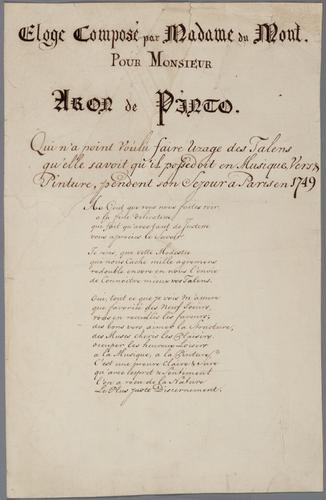 Eloge Composé par Madame du Mont.
Pour Monsieur
Aron de Pinto.
Qui n'a point voulû faire Uzage des Talens
qu'elle savoit qu'il possedoit en Musique, Vers &
Pinture, pendent son Sejour a Paris en 1749
que vous nous faites voir,
a la fois
qui fait qu'avec tant de Justesse
vous apreciés le Savoir.
Je sens, que cette Modestie
que nous Cache mille agremens
redouble encore en nous l'envie
de Connoitre mieux vos Talens.
Oui, tout ce que je vois M'assure
que favorisé des Neuf Soeurs,
vous en recueillés les faveurs;
des bons vers, aimés la Structure,
des Muses cheris les Plaisirs,
occuper les heureux Loisirs
a la Musique, a la Pinture,
C'est une preuve Claire & sure
qu'avec l'esprit & Sentiment
l'on a reçu de la Nature
Le Plus juste Discernement.